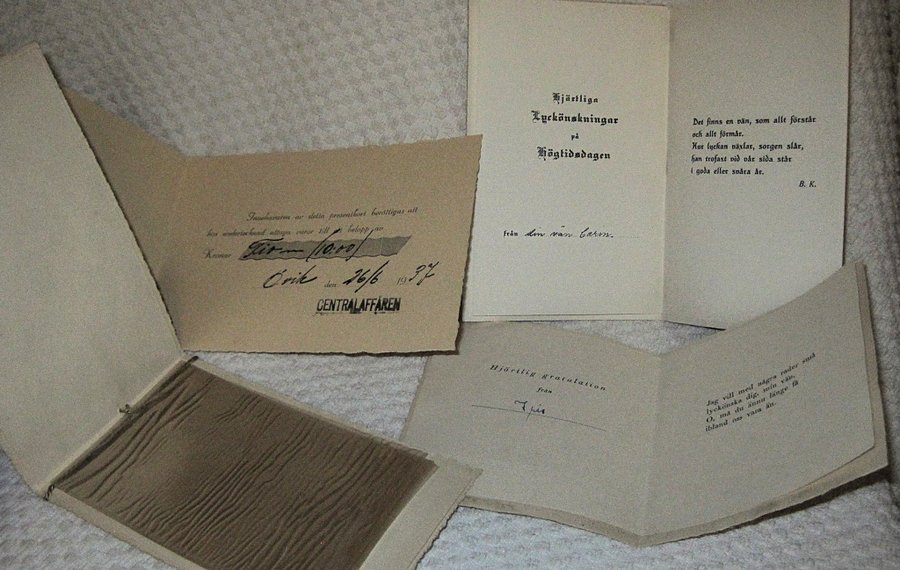 Innehavaren av detta presentkort berättigas att
hos undertecknad uttaga varor till belopp av
Kronor Tio (10.00)
Övik den 26/6 1937
CENTRALAFFÄREN
Hjärtliga
Lyckönskningar
på
Högtidsdagen
från din vän Carin.
Det finns en vän, som allt förstår
och allt förmår.
Hur lyckan växlar, sorgen slår,
han trofast vid vår sida står
i goda eller svåra år.
B. K.
Hjärtlig gratulation
från
Jag vill med några rader små
lyckönska dig, min vän.
O, må du ännu länge få
ibland oss vara än.